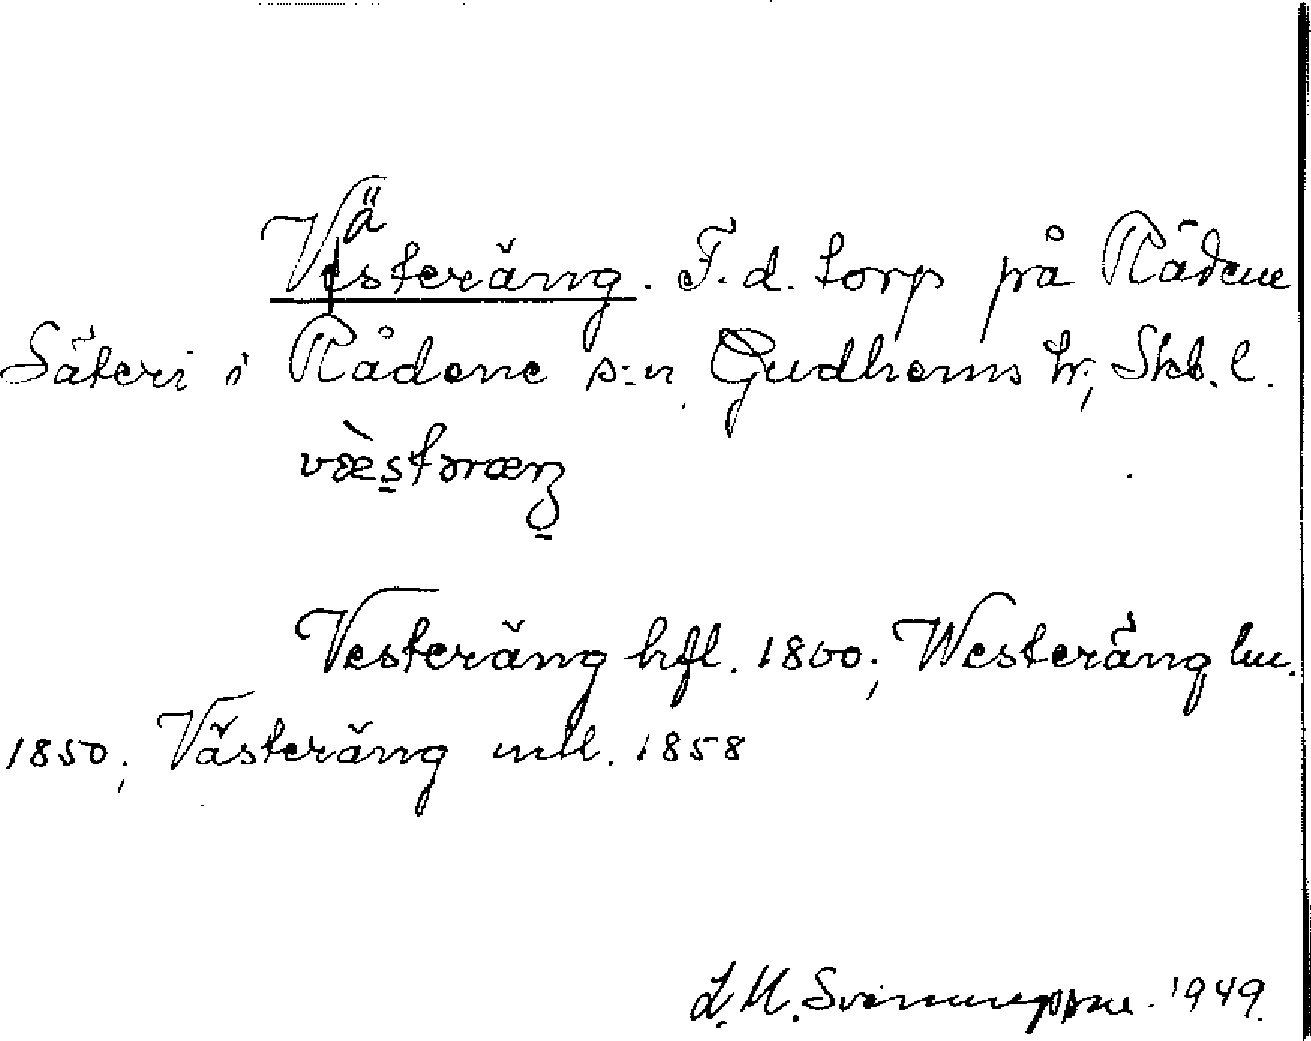 Västeräng. F.d. torp på Rådene
Säteri i Rådene s:n Gudhems hr, Skb. l.
væ̀stəræŋ
Vesteräng hfl. 1800; Westeräng hu.
1850; Västeräng mtl. 1858
L. M. Svennungsson. 1949.